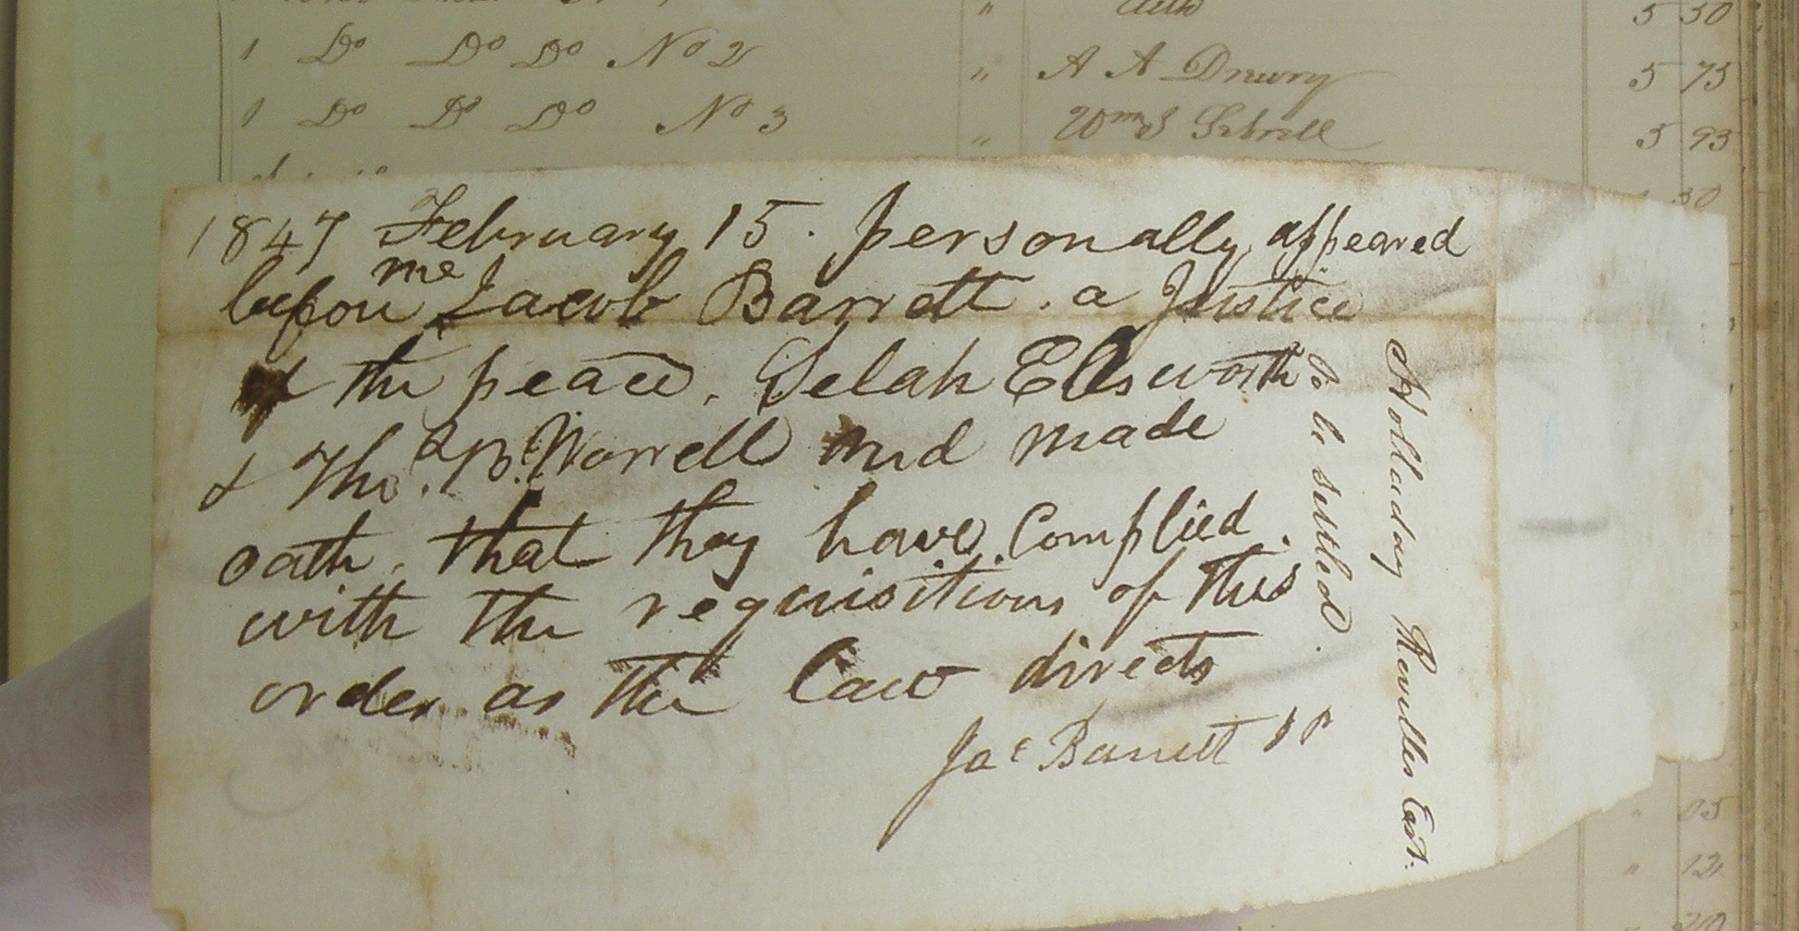 5 50
1 Do Do Do No 2 " A A Drury 5 75
1 Do Do Do No 3 " Wm S 5 93
30
1847 February 15. personally appeared
before me Jacob Barrett. a Justice
of the peace, Selah Ellsworth
& Thos. B. Worrell and made
oath, that they have Complied
with the requisitions of this
order as the Law directs
Jac Barrett JP
To be settled
Holladay East.
05
12
20